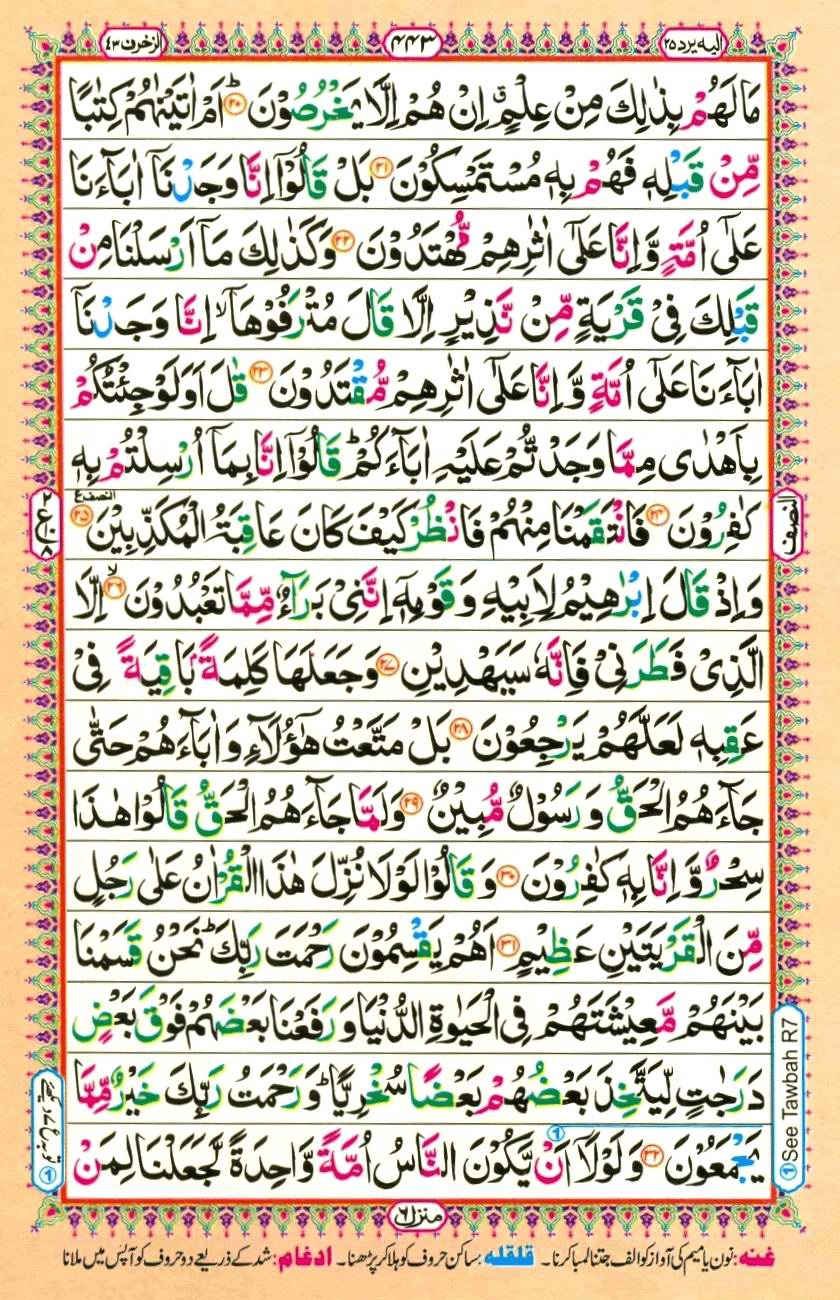 الزخرف ٤٣
٤٤٣
الیه یرد ٢٥
مَا لَهُمْ بِذٰلِكَ مِنْ عِلْمٍۗ اِنْ هُمْ اِلَّا یَخْرُصُوْنَؕ ۝۲۰ اَمْ اٰتَیْنٰهُمْ كِتٰبًا
مِّنْ قَبْلِهٖ فَهُمْ بِهٖ مُسْتَمْسِكُوْنَ ۝۲۱ بَلْ قَالُوْۤا اِنَّا وَجَدْنَاۤ اٰبَآءَنَا
عَلٰۤى اُمَّةٍ وَّاِنَّا عَلٰۤى اٰثٰرِهِمْ مُّهْتَدُوْنَ ۝۲۲ وَكَذٰلِكَ مَاۤ اَرْسَلْنَا مِنْ
قَبْلِكَ فِیْ قَرْیَةٍ مِّنْ نَّذِیْرٍ اِلَّا قَالَ مُتْرَفُوْهَاۤۙ اِنَّا وَجَدْنَاۤ
اٰبَآءَنَا عَلٰۤى اُمَّةٍ وَّاِنَّا عَلٰۤى اٰثٰرِهِمْ مُّقْتَدُوْنَ ۝۲۳ قٰلَ اَوَلَوْ جِئْتُكُمْ
بِاَهْدٰى مِمَّا وَجَدْتُّمْ عَلَیْهِ اٰبَآءَكُمْؕ قَالُوْۤا اِنَّا بِمَاۤ اُرْسِلْتُمْ بِهٖ
كٰفِرُوْنَ ۝۲۴ فَانْتَقَمْنَا مِنْهُمْ فَانْظُرْ كَیْفَ كَانَ عَاقِبَةُ الْمُكَذِّبِیْنَ ۝۲۵
النصف
وَاِذْ قَالَ اِبْرٰهِیْمُ لِاَبِیْهِ وَقَوْمِهٖۤ اِنَّنِیْ بَرَآءٌ مِّمَّا تَعْبُدُوْنَۙ ۝۲۶ اِلَّا
الَّذِیْ فَطَرَنِیْ فَاِنَّهٗ سَیَهْدِیْنِ ۝۲۷ وَجَعَلَهَا كَلِمَةًۢ بَاقِیَةً فِیْ
عَقِبِهٖ لَعَلَّهُمْ یَرْجِعُوْنَ ۝۲۸ بَلْ مَتَّعْتُ هٰۤؤُلَآءِ وَاٰبَآءَهُمْ حَتّٰى
جَآءَهُمُ الْحَقُّ وَرَسُوْلٌ مُّبِیْنٌ ۝۲۹ وَلَمَّا جَآءَهُمُ الْحَقُّ قَالُوْا هٰذَا
سِحْرٌ وَّاِنَّا بِهٖ كٰفِرُوْنَ ۝۳۰ وَقَالُوْا لَوْلَا نُزِّلَ هٰذَا الْقُرْاٰنُ عَلٰى رَجُلٍ
مِّنَ الْقَرْیَتَیْنِ عَظِیْمٍ ۝۳۱ اَهُمْ یَقْسِمُوْنَ رَحْمَتَ رَبِّكَؕ نَحْنُ قَسَمْنَا
بَیْنَهُمْ مَّعِیْشَتَهُمْ فِی الْحَیٰوةِ الدُّنْیَا وَرَفَعْنَا بَعْضَهُمْ فَوْقَ بَعْضٍ
دَرَجٰتٍ لِّیَتَّخِذَ بَعْضُهُمْ بَعْضًا سُخْرِیًّاؕ وَرَحْمَتُ رَبِّكَ خَیْرٌ مِّمَّا
یَجْمَعُوْنَ ۝۳۲ وَلَوْلَاۤ اَنْ یَّكُوْنَ النَّاسُ اُمَّةً وَّاحِدَةً لَّجَعَلْنَا لِمَنْ
① See Tawbah R7
منزل ٦
غنه: نون یا میم کی آواز کو الف جتنا لمبا کرنا۔ قلقله: ساکن حروف کو ہلا کر پڑھنا۔ ادغام: شد کے ذریعے دو حروف کو آپس میں ملانا